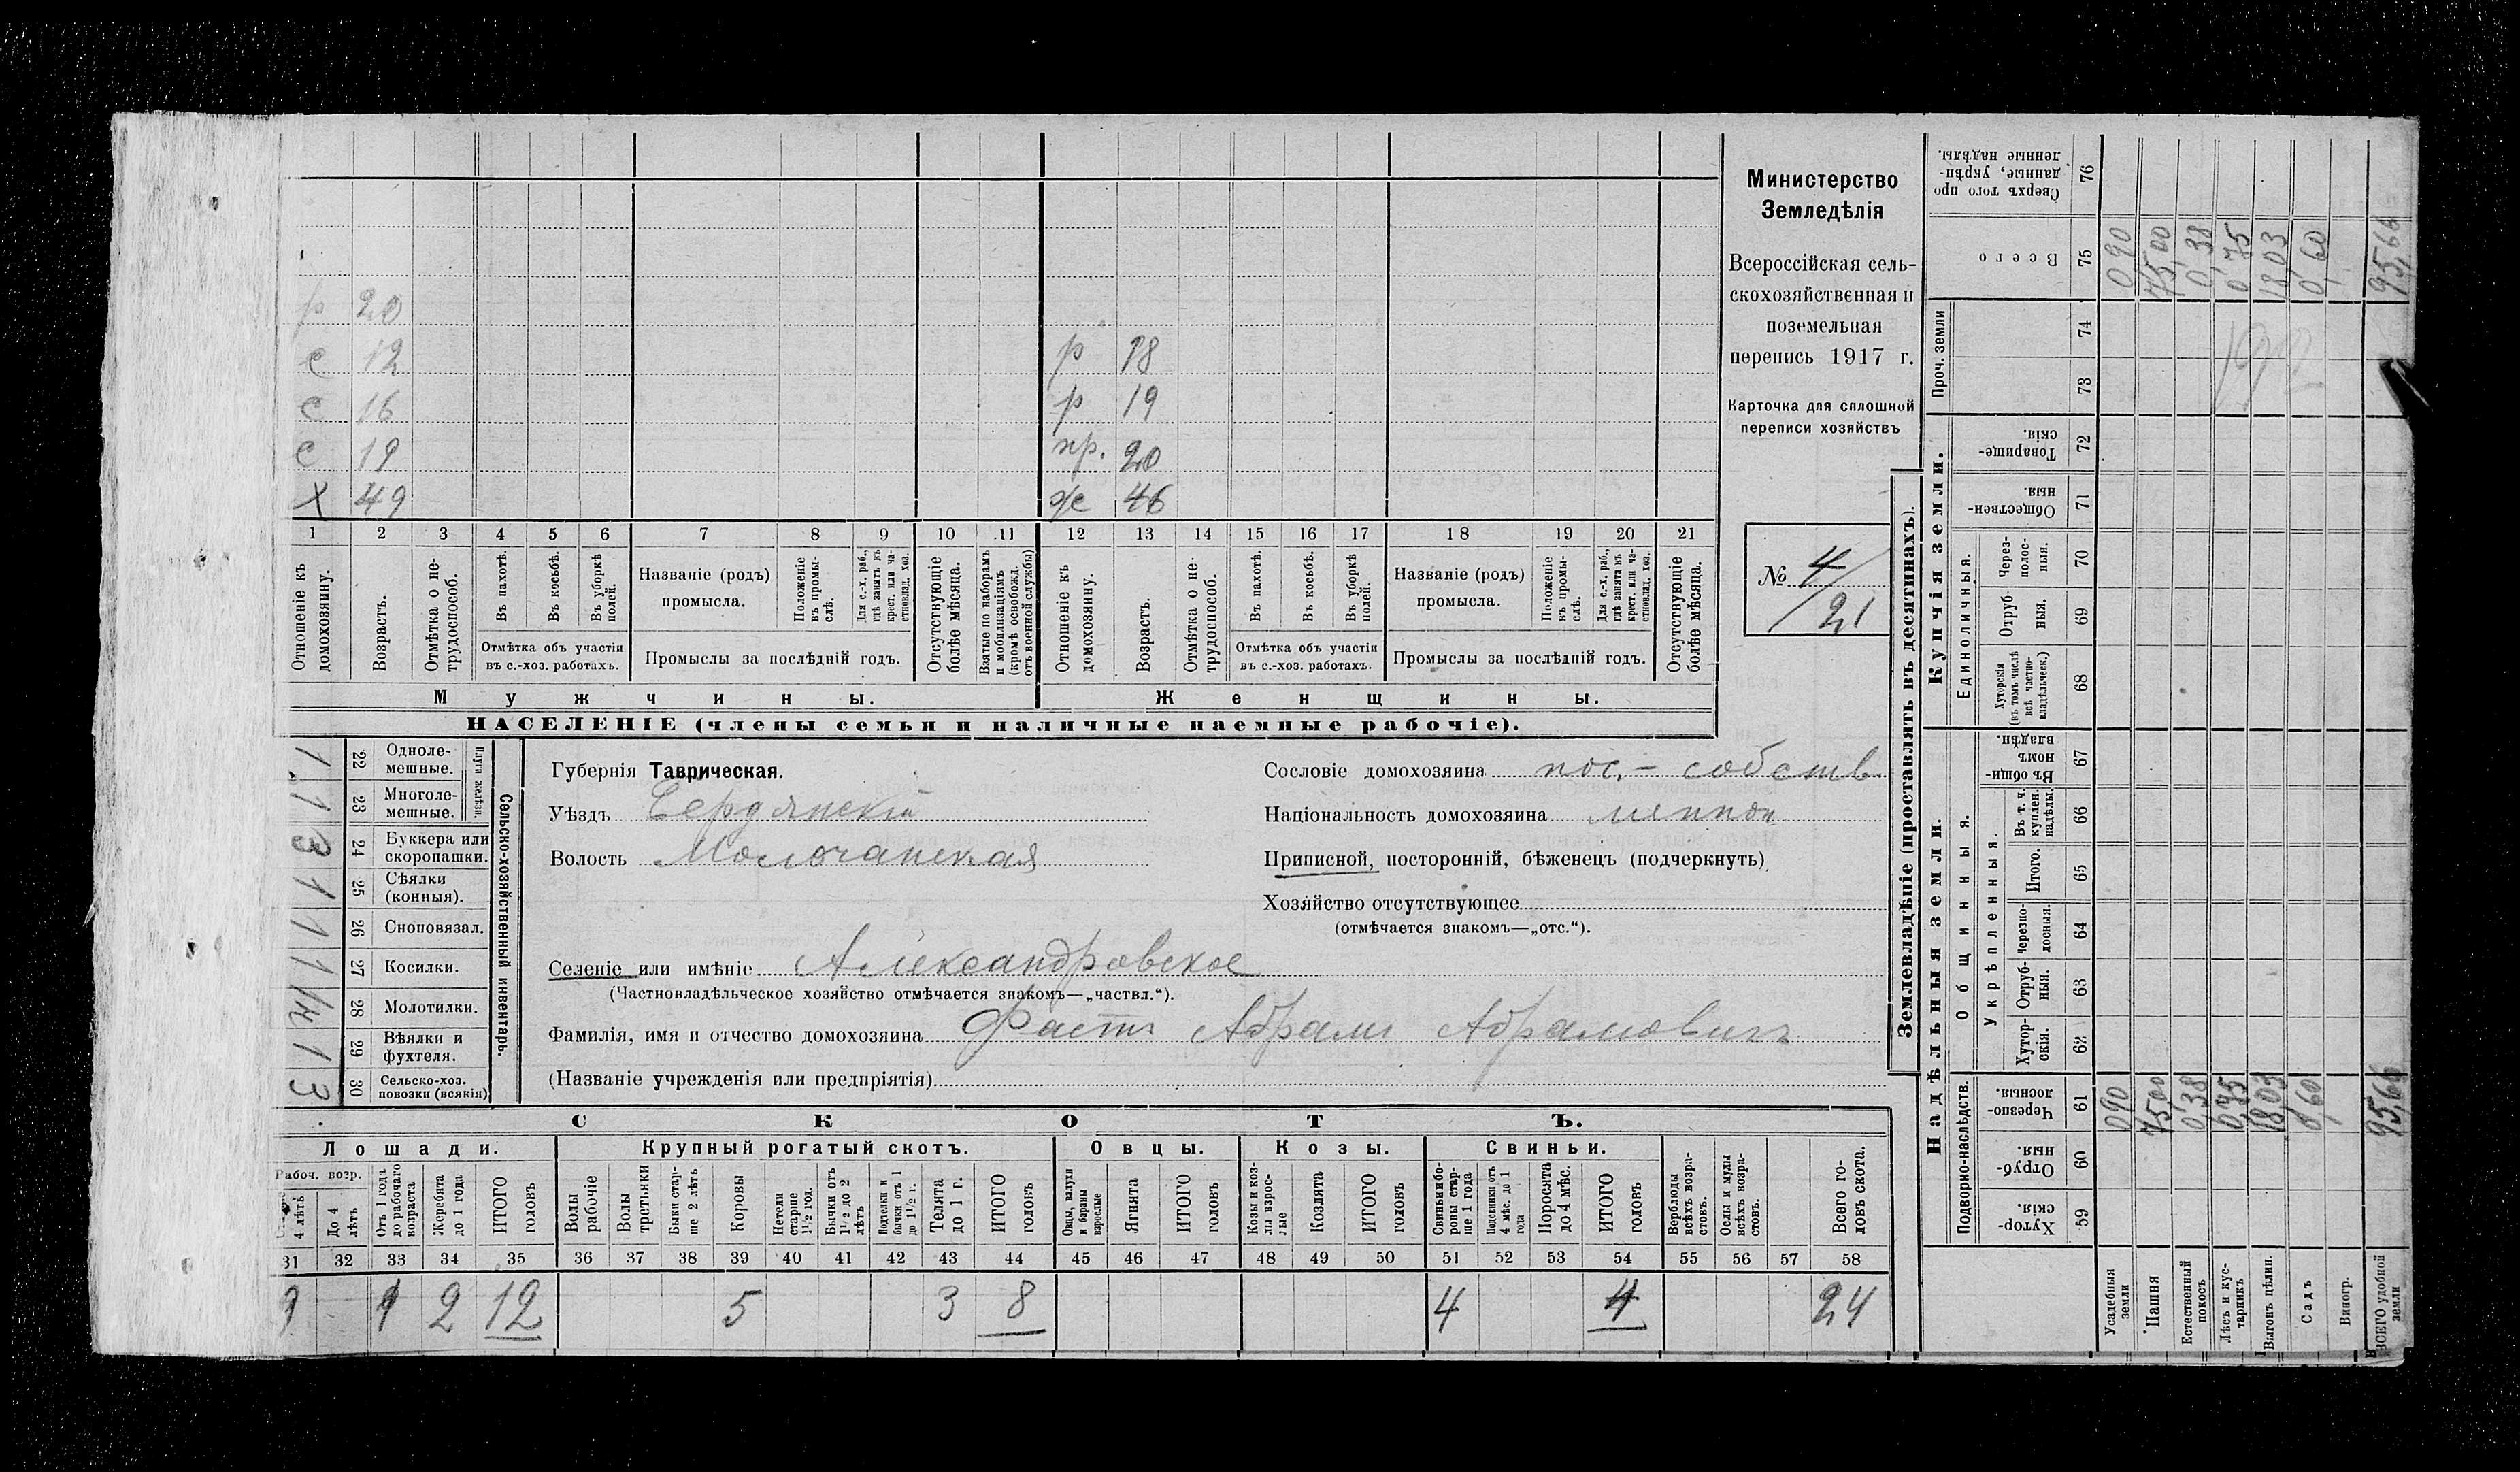 Министерство
Земледѣлія
Всероссійская сель-
скохозяйственная и
поземельная
перепись 1917 г.
Карточка для сплошной
переписи хозяйствъ
№ 4/21
р 20
с 12 р 18
с 16 р 19
с 19 пр. 20
х 49 ж 46
1 2 3 4 5 6 7 8 9 10 11 12 13 14 15 16 17 18 19 20 21
Отношеніе къ домохозяину.
Возрастъ.
Отмѣтка о не-трудоспособ.
Въ пахотѣ.
Въ косьбѣ.
Въ уборкѣ полей.
Отмѣтка объ участіи въ с.-хоз. работахъ.
Названіе (родъ) промысла.
Положеніе въ промы-слѣ.
Для с.-х. раб., гдѣ занятъ въ крест. или ча-стновлад. хоз.
Промыслы за послѣдній годъ.
Отсутствующіе болѣе мѣсяца.
Взятые по наборамъ и мобилизаціямъ (кромѣ освобожд. отъ военной службы)
Отношеніе къ домохозяину.
Возрастъ.
Отмѣтка о не-трудоспособ.
Въ пахотѣ.
Въ косьбѣ.
Въ уборкѣ полей.
Отмѣтка объ участіи въ с.-хоз. работахъ.
Названіе (родъ) промысла.
Положеніе въ промы-слѣ.
Для с.-х. раб., гдѣ занята въ крест. или ча-стновлад. хоз.
Промыслы за послѣдній годъ.
Отсутствующіе болѣе мѣсяца.
Мужчины. Женщины.
НАСЕЛЕНІЕ (члены семьи и наличные наемные рабочіе).
Сельско-хозяйственный инвентарь.
Плуги желѣзн.
1 22 Одноле-мешные.
1 23 Многоле-мешные.
3 24 Буккера или скоропашки.
1 25 Сѣялки (конныя).
1 26 Сноповязал.
1 27 Косилки.
1/4 28 Молотилки.
1 29 Вѣялки и фухтеля.
3 30 Сельско-хоз. повозки (всякія)
Губернія Таврическая.
Уѣздъ Бердянскій
Волость Молочанская
Селеніе или имѣніе Александровское
(Частновладѣльческое хозяйство отмѣчается знакомъ—„частвл.“).
Фамилія, имя и отчество домохозяина Фастъ Абрамъ Абрамовичъ
(Названіе учрежденія или предпріятія)
Сословіе домохозяина пос.- собств.
Національность домохозяина меннон
Приписной, посторонній, бѣженецъ (подчеркнуть)
Хозяйство отсутствующее
(отмѣчается знакомъ—„отс.“).
СКОТЪ.
Лошади. Крупный рогатый скотъ. Овцы. Козы. Свиньи.
Рабоч. возр.
4 лѣтъ
До 4 лѣтъ
Отъ 1 года до рабочаго возраста
Жеребята до 1 года
ИТОГО головъ
Волы рабочіе
Волы третьяки
Быки стар-ше 2 лѣтъ
Коровы
Нетели старше 1½ год.
Бычки отъ 1½ до 2 лѣтъ
Подтелки и бычки отъ 1 до 1½ г.
Телята до 1 г.
ИТОГО головъ
Овцы, валухи и бараны взрослые
Ягнята
ИТОГО головъ
Козы и коз-лы взрос-лые
Козлята
ИТОГО головъ
Свиньи и бо-ровы стар-ше 1 года
Подсвинки отъ 4 мѣс. до 1 года
Поросята до 4 мѣс.
ИТОГО головъ
Верблюды всѣхъ возра-стовъ.
Ослы и мулы всѣхъ возра-стовъ.
Всего го-ловъ скота.
31 32 33 34 35 36 37 38 39 40 41 42 43 44 45 46 47 48 49 50 51 52 53 54 55 56 57 58
9 1 2 12 5 3 8 4 4 24
Землевладѣніе (проставлять въ десятинахъ).
Надѣльныя земли. Купчія земли. Проч. земли
Подворно-наслѣдств.
Общинныя.
Укрѣпленныя.
Единоличныя.
Хутор-скія. 59
Отруб-ныя. 60
Черезпо-лосныя. 61
Хутор-скія. 62
Отруб-ныя. 63
Черезпо-лосныя. 64
Итого. 65
Въ т. ч. куплен. надѣлы. 66
Въ общин-номъ владѣн. 67
Хуторскія (въ томъ числѣ всѣ частно-владѣльческ.) 68
Отруб-ныя. 69
Через-полос-ныя. 70
Обществен-ныя. 71
Товарище-скія. 72
73
74
Всего 75
Сверхъ того про-данные, укрѣп-ленные надѣлы. 76
Усадебныя земли 0,90 0,90
Пашня 75,00 75,00
Естественный покосъ 0,38 0,38
Лѣсъ и кус-тарникъ 0,75 0,75
Выгонъ цѣлин. 18,03 18,03
Садъ 0,60 0,60
Виногр.
ВСЕГО удобной земли 95,66 95,66